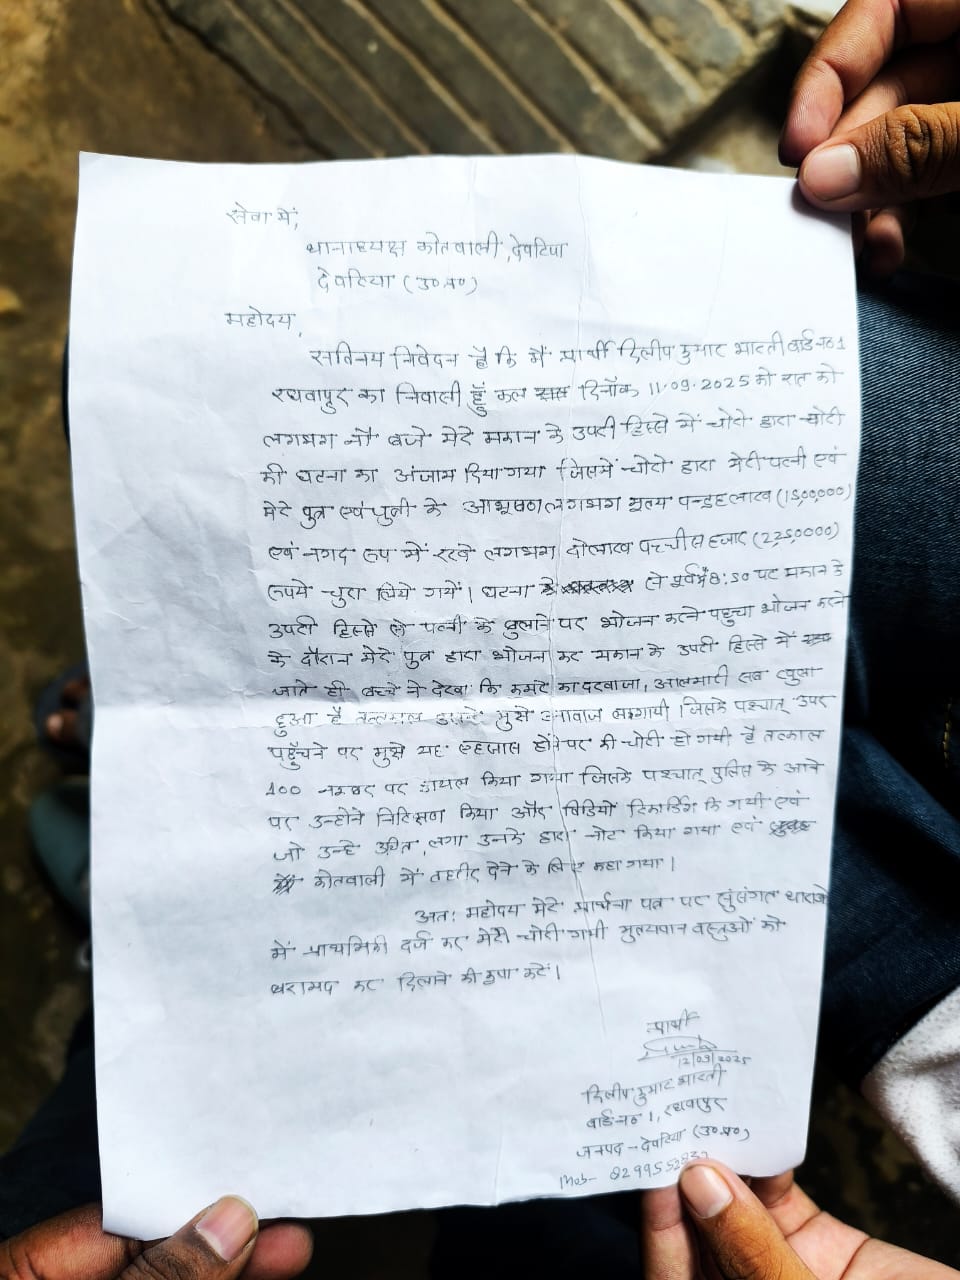 सेवा में,
थानाध्यक्ष कोतवाली, देवरिया
देवरिया (उ०प्र०)
महोदय,
सविनय निवेदन है कि मैं प्रार्थी दिलीप कुमार भारती वार्ड न० 1
रघवापुर का निवासी हूँ कल दिनाँक 11.09.2025 को रात को
लगभग नौ बजे मेरे मकान के उपरी हिस्से में चोरो द्वारा चोरी
की घटना का अंजाम दिया गया जिसमें चोरो द्वारा मेरी पत्नी एवं
मेरे पुत्र एवं पुत्री के आभूषण लगभग मूल्य पन्द्रह लाख (15,00,000)
एवं नगद रूप में रखे लगभग दो लाख पच्चीस हजार (2,25,0000)
रूपये चुरा लिये गयें। घटना से पूर्व मैं 8:50 पर मकान के
उपरी हिस्से से पत्नी के बुलाने पर भोजन करने पहुचा भोजन करने
के दौरान मेरे पुत्र द्वारा भोजन कर मकान के उपरी हिस्से में
जाते ही बच्चे ने देखा कि कमरे का दरवाजा, आलमारी सब खुला
हुआ है तत्काल मुझे आवाज लगायी जिसके पश्चात् उपर
पहुँचने पर मुझे यह एहसास होने पर की चोरी हो गयी है तत्काल
100 नम्बर पर डायल किया गया जिसके पश्चात् पुलिस के आने
पर उन्होने निरिक्षण किया और विडियो रिकार्डिंग कि गयी एवं
जो उन्हे उचित लगा उनके द्वारा नोट किया गया एवं
कोतवाली में तहरीर देने के लिए कहा गया।
अत: महोदय मेरे प्रार्थना पत्र पर सुसंगत धाराओ
में प्राथमिकी दर्ज कर मेरी चोरी गयी मुल्यवान वस्तुओं को
बरामद कर दिलाने की कृपा करें।
प्रार्थी
12/09/2025
दिलीप कुमार भारती
वार्ड न० 1, रघवापुर
जनपद - देवरिया (उ०प्र०)
Mob-